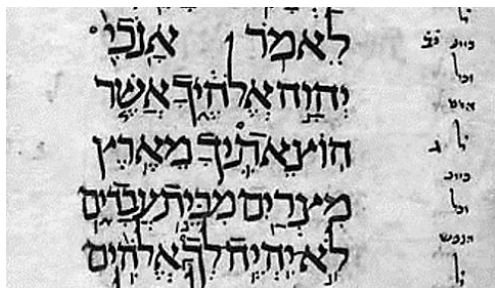 לֵאמֹר אָנֹכִי
יְהוָה אֱלֹהֶיךָ אֲשֶׁר
הוֹצֵאתִיךָ מֵאֶרֶץ
מִצְרַיִם מִבֵּית עֲבָדִים
לֹא יִהְיֶה לְךָ אֱלֹהִים